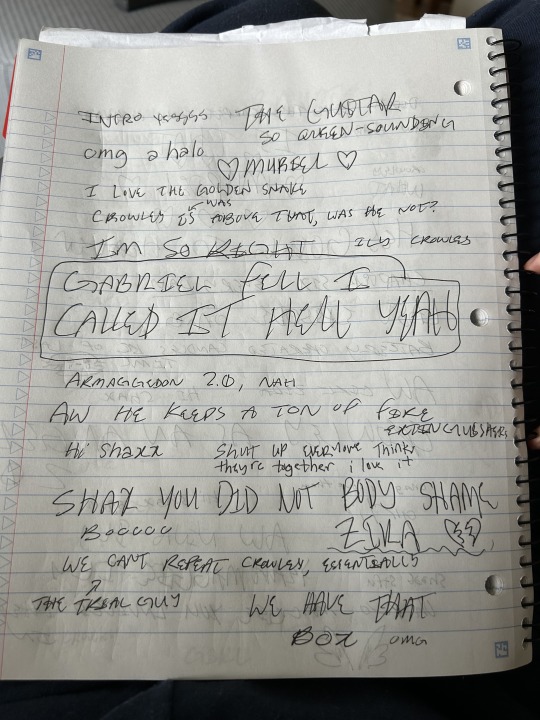 INTRO yesssss THE GUITAR
SO QUEEN-SOUNDING
omg a halo
♡ MURIEL ♡
I LOVE THE GOLDEN SNAKE
WAS
CROWLEY IS ABOVE THAT, WAS HE NOT?
I'M SO RIGHT ILY CROWLEY
GABRIEL FELL I
CALLED IT HELL YEAH
ARMAGEDDON 2.0, NAH
AW HE KEEPS A TON OF FIRE
EXTINGUISHERS
Hi Shaxx Shut up everyone thinks
they're together i love it
SHAX YOU DID NOT BODY SHAME
BOOOOO ZIRA
WE CAN'T REPEAT CROWLEY, ESSENTIALLY
THE TRIAL GUY WE HAVE THAT
BOX OMG